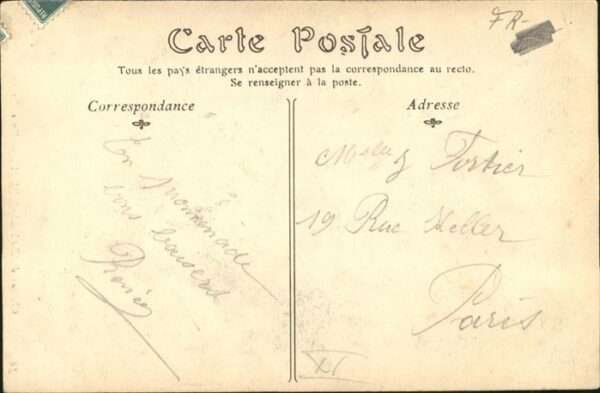 FR-
Carte Postale
Tous les pays étrangers n'acceptent pas la correspondance au recto.
Se renseigner à la poste.
Correspondance
Adresse
En promenade
bons baisers
Melle Fortier
19 Rue Keller
Paris